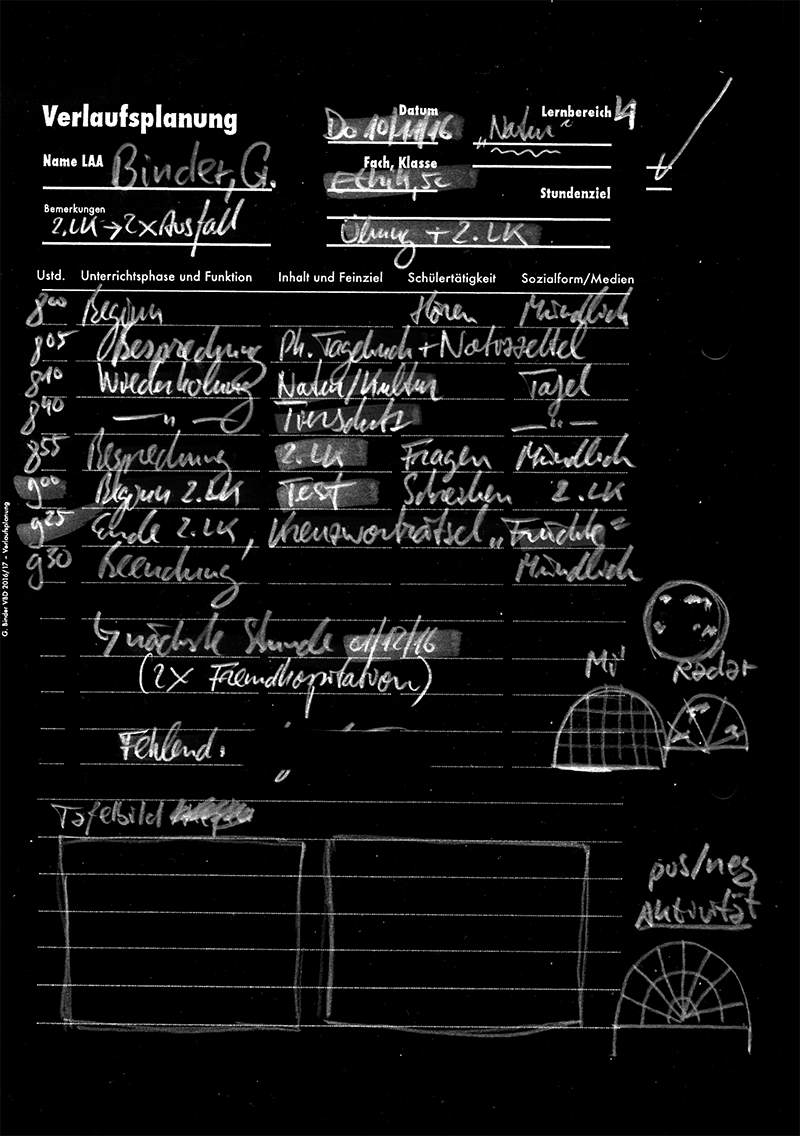 Verlaufsplanung
Datum
Do 10/11/16
Lernbereich 4
„Natur“
Name LAA Binder, G.
Fach, Klasse
Ethik, 5c
Stundenziel
Bemerkungen
2. LK → 2x Ausfall
Übung + 2. LK
Ustd. Unterrichtsphase und Funktion Inhalt und Feinziel Schülertätigkeit Sozialform/Medien
8⁰⁰ Beginn Hören Mündlich
8⁰⁵ Besprechung Ph. Tagebuch + Notenzettel
8¹⁰ Wiederholung Natur/Kultur Tafel
8⁴⁰ —„— Tierschutz —„—
8⁵⁵ Besprechung 2. LK Fragen Mündlich
9⁰⁰ Beginn 2. LK Test Schreiben 2. LK
9²⁵ Ende 2. LK, Kreuzworträtsel „Früchte“
9³⁰ Beendung Mündlich
G. Binder VBD 2016/17 – Verlaufsplanung
↳ nächste Stunde 01/12/16
(2x Fremdhospitation)
Mü Radar
Fehlend:
Tafelbild
pos/neg
Aktivität